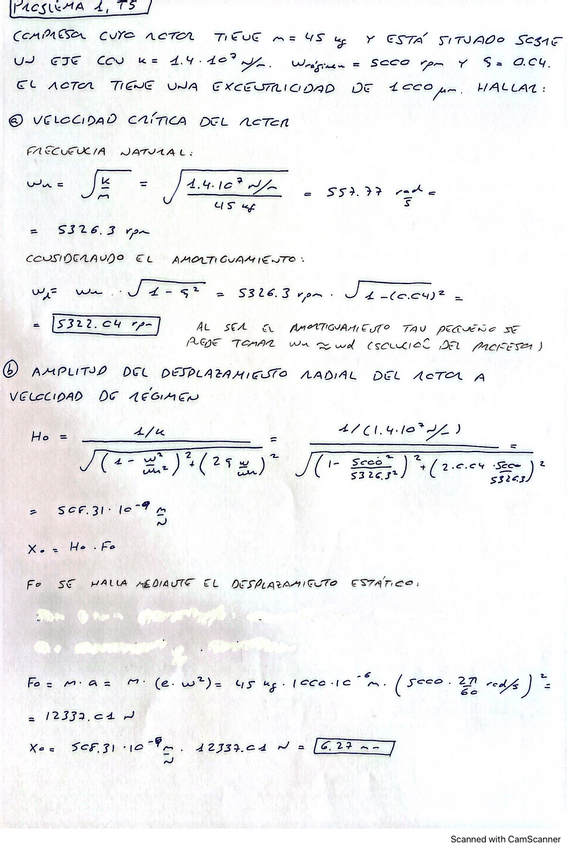 PROBLEMA 1, T5
COMPRESOR CUYO ROTOR TIENE m = 45 kg Y ESTÁ SITUADO SOBRE
UN EJE CON K = 1.4 · 10⁷ N/m. ωrégimen = 5000 rpm Y ζ = 0.04.
EL ROTOR TIENE UNA EXCENTRICIDAD DE 1000 μm. HALLAR:
ⓐ VELOCIDAD CRÍTICA DEL ROTOR
FRECUENCIA NATURAL:
ωn = √(K/m) = √(1.4·10⁷ N/m / 45 kg) = 557.77 rad/s =
= 5326.3 rpm
CONSIDERANDO EL AMORTIGUAMIENTO:
ωd = ωn · √(1 - ζ²) = 5326.3 rpm · √(1 - (0.04)²) =
= 5322.04 rpm AL SER EL AMORTIGUAMIENTO TAN PEQUEÑO SE
PUEDE TOMAR ωn ≈ ωd (SOLUCIÓN DEL PROFESOR)
ⓑ AMPLITUD DEL DESPLAZAMIENTO RADIAL DEL ROTOR A
VELOCIDAD DE RÉGIMEN
H₀ = (1/K) / √((1 - ω²/ωn²)² + (2ζ ω/ωn)²) = 1/(1.4·10⁷ N/m) / √((1 - 5000²/5326.3²)² + (2·0.04·5000/5326.3)²) =
= 508.31 · 10⁻⁹ m/N
X₀ = H₀ · F₀
F₀ SE HALLA MEDIANTE EL DESPLAZAMIENTO ESTÁTICO:
F₀ = m · a = m · (e · ω²) = 45 kg · 1000·10⁻⁶ m · (5000 · 2π/60 rad/s)² =
= 12337.01 N
X₀ = 508.31 · 10⁻⁹ m/N · 12337.01 N = 6.27 mm
Scanned with CamScanner